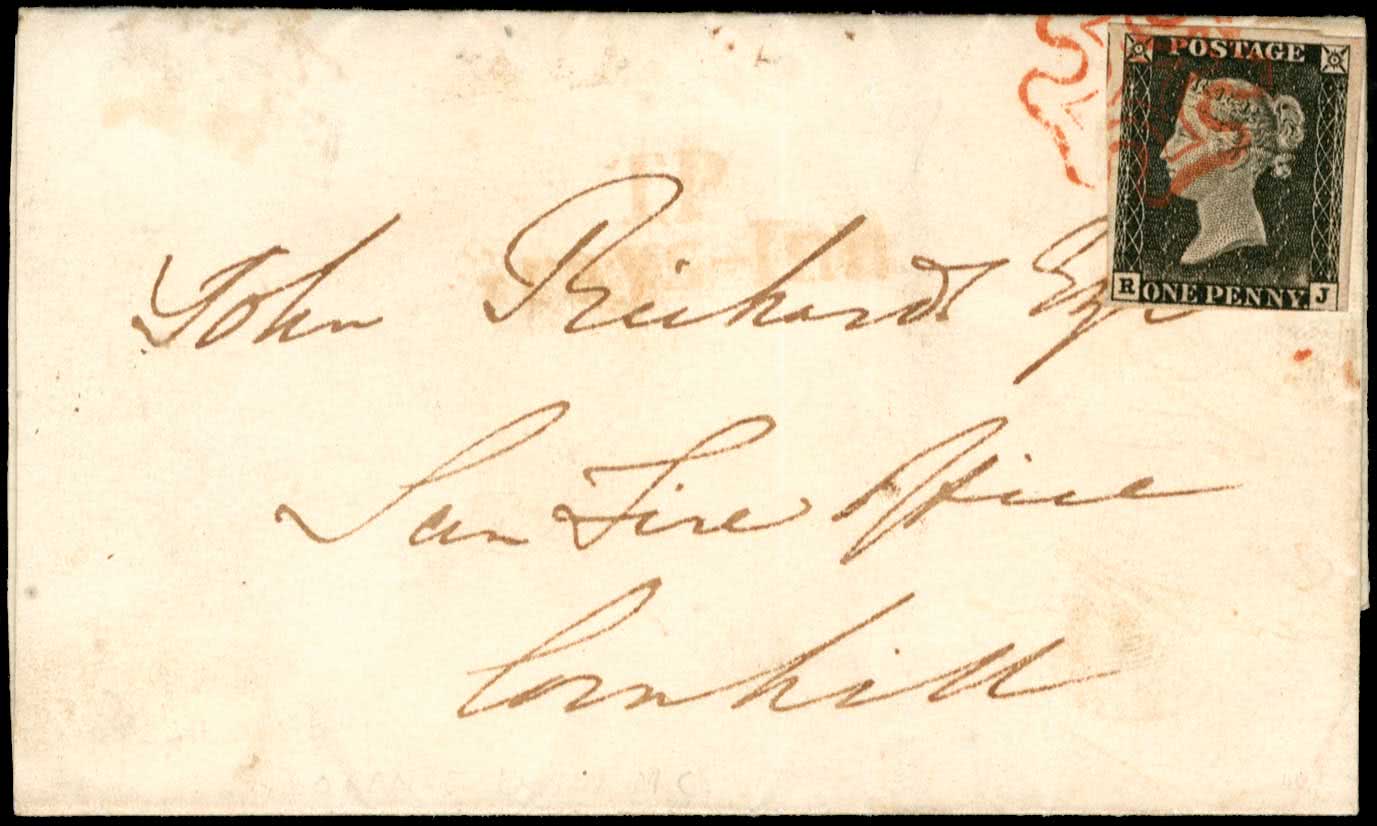 POSTAGE
R ONE PENNY. J
John Richards Esqr
Sun Fire Office
Cornhill